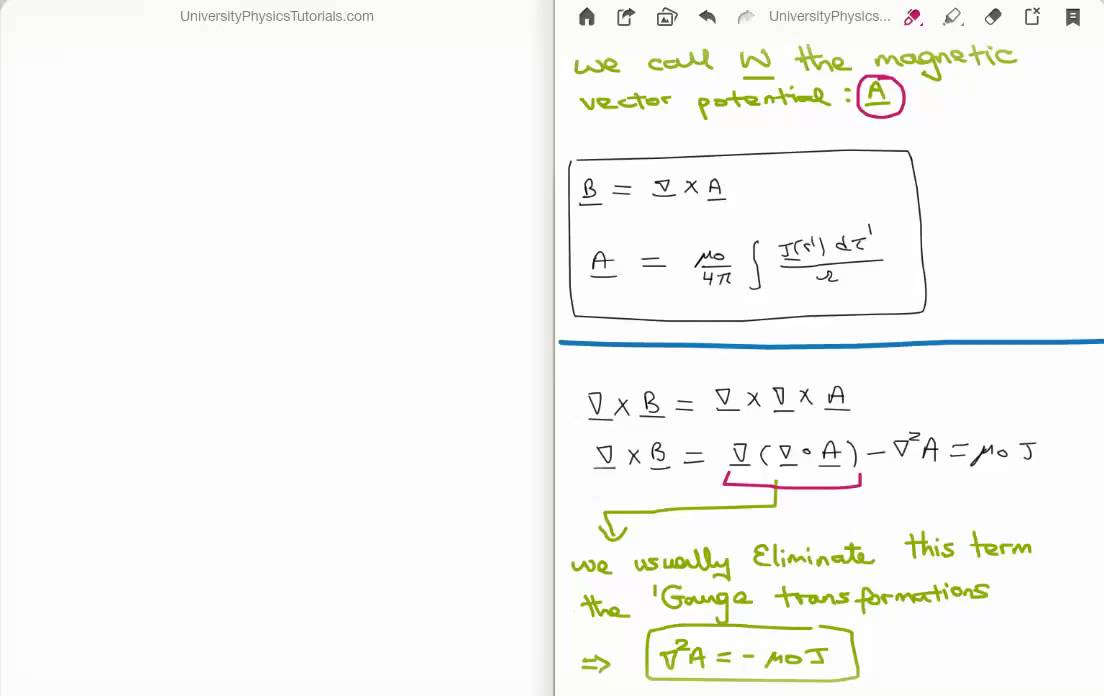 UniversityPhysicsTutorials.com
UniversityPhysics...
we call W the magnetic
vector potential : A
B = ∇ × A
A = μ0/4π ∫ J(r') dτ'/r
∇ × B = ∇ × ∇ × A
∇ × B = ∇ (∇ ∘ A) − ∇²A = μ0 J
we usually Eliminate this term
the 'Gauge transformations
⇒ ∇²A = − μ0 J